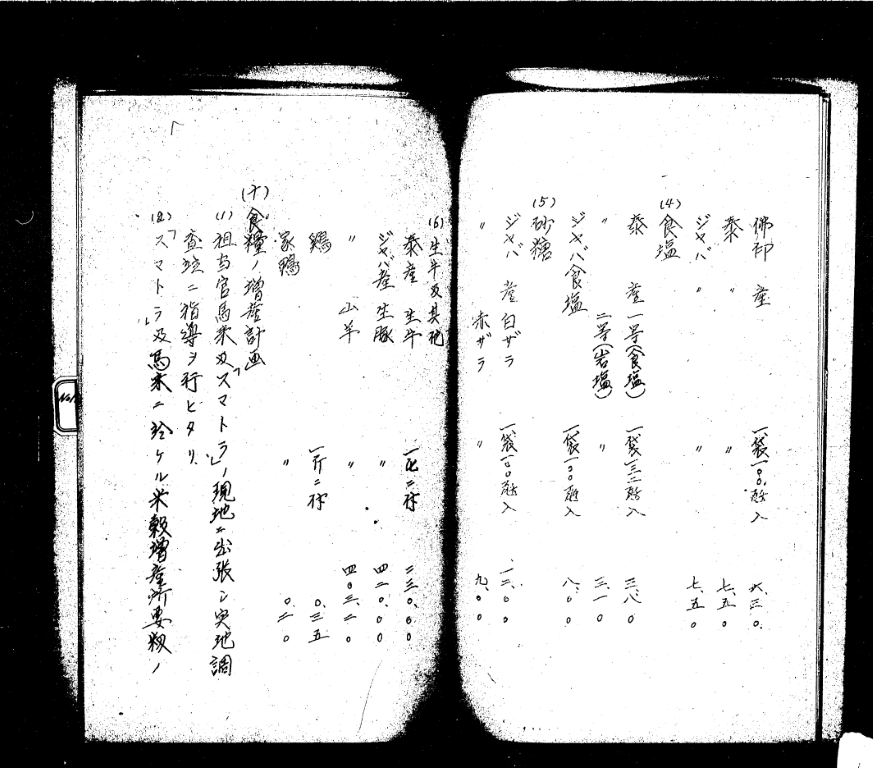 佛印 産 一袋一〇〇瓩入 六.三〇
泰 〃 〃 七.五〇
ジャバ 〃 〃 七.五〇
(4) 食塩
泰 産 一等(食塩) 一袋一三二瓩入 三.八〇
〃 二等(岩塩) 〃 三.一〇
ジャバ食塩 一袋一〇〇瓩入 八.〇〇
(5) 砂糖
ジャバ 産 白ザラ 一袋一〇〇瓩入 一二.〇〇
〃 赤ザラ 〃 九.〇〇
(6) 生牛及其他
泰産 生牛 一 ニ付 二三〇.〇〇
ジャバ産 生豚 〃 四二〇.〇〇
〃 山羊 〃 四〇三.二〇
鶏 一斤ニ付 〇.三五
家鴨 〃 〇.二〇
(十) 食糧ノ増産計画
(1) 担当官馬来及「スマトラ」ノ現地ニ出張シ実地調
査並ニ指導ヲ行ヒタリ
(2) 「スマトラ」及馬来ニ於ケル米穀増産所要籾ノ